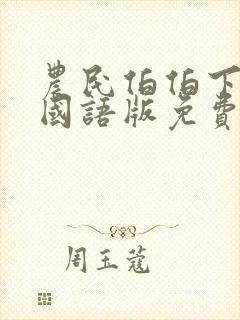 農民伯伯下
國語版免費
周玉蔻